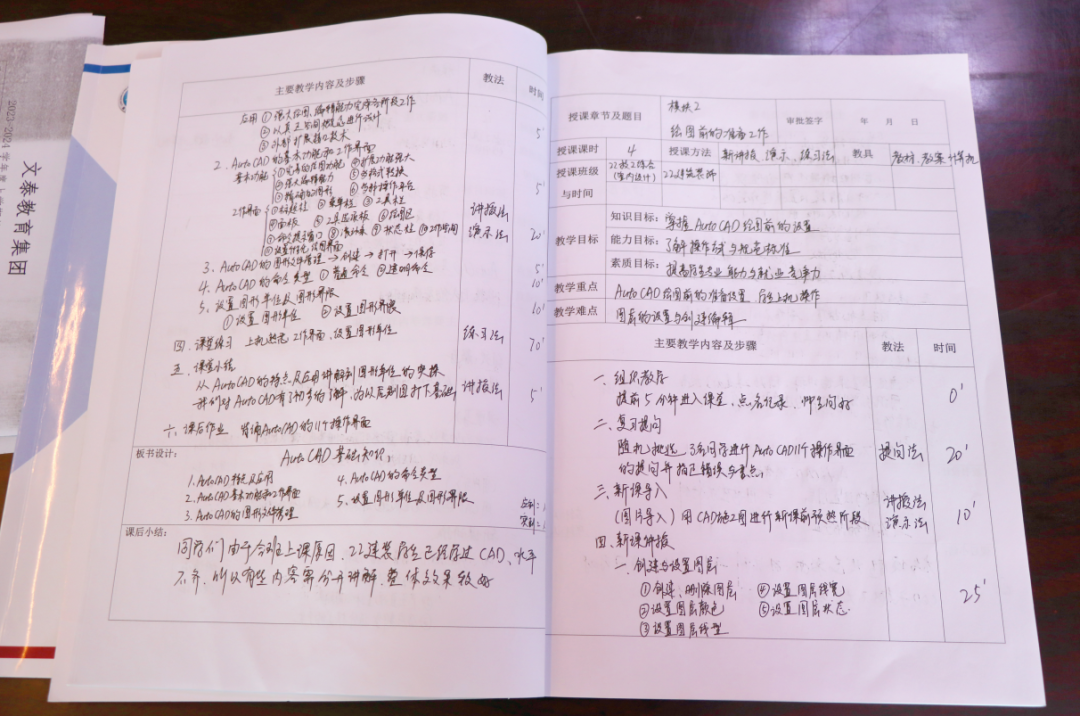 2023-2024学年第
文泰教育集团
主要教学内容及步骤 教法 时间
应用 ①强大绘图、编辑能力完成各阶段工作
②以真正空间概念进行设计
③外部扩展接口技术 5'
2、AutoCAD的基本功能和工作界面
基本功能 ①完善的绘图功能 ④扩展功能强大
②强大编辑能力
③精确的图形 ⑥多种操作平台 5'
工作界面 ①标题栏 ②菜单栏 ③工具栏
④面板 ⑤工具选项板 ⑥绘图区 讲授法
⑦命令提示窗口 ⑨状态栏 演示法 20'
3、AutoCAD的图形文件管理→创建→打开→保存 5'
4、AutoCAD的命令类型 ①普通命令 ②透明命令 10'
5、设置图形单位及图形界限
①设置图形单位 ②设置图形界限 10'
四、课堂练习 上机熟悉工作界面、设置图形单位 练习法 70'
五、课堂小结
从AutoCAD的特点及应用讲解到图形单位的实操
并们对AutoCAD有了初步的了解,为以后制图打下基础 讲授法 5'
六、课后作业 背诵AutoCAD的11个操作界面
板书设计: AutoCAD基础知识
1、AutoCAD概述及应用 4、AutoCAD的命令类型
2、AutoCAD基本功能和工作界面 5、设置图形单位及图形界限
3、AutoCAD的图形文件管理
课后小结:
同学们由于合班上课原因、22建装学生已经学过CAD、水平
不齐,所以有些内容需分开讲解,整体效果较好
授课章节及题目 模块2
绘图前的准备工作 审批签字 年 月 日
授课课时 4 授课方法 新讲授、演示、练习法 教具 教材、教案 计算机
授课班级 (室内设计) 22建筑装饰
与时间
教学目标 知识目标: 掌握AutoCAD绘图前的设置
能力目标: 了解操作方式与规范标准
素质目标: 提高学生专业能力与就业竞争力
教学重点 AutoCAD绘图前的准备设置 学生上机操作
教学难点 图层的设置与创建编辑
主要教学内容及步骤 教法 时间
一、组织教学
提前5分钟进入课堂,点名记录、师生问好 0'
二、复习提问
随机挑选3名同学进行AutoCAD11个操作界面 提问法 20'
的提问并指正错误与重点;
三、新课导入 讲授法
(图片导入)用CAD施工图进行新课前预热阶段 演示法 10'
四、新课讲授
一、创建与设置图层
①创建、删除图层 ④设置图层线宽 25'
②设置图层颜色 ⑤设置图层状态
③设置图层线型